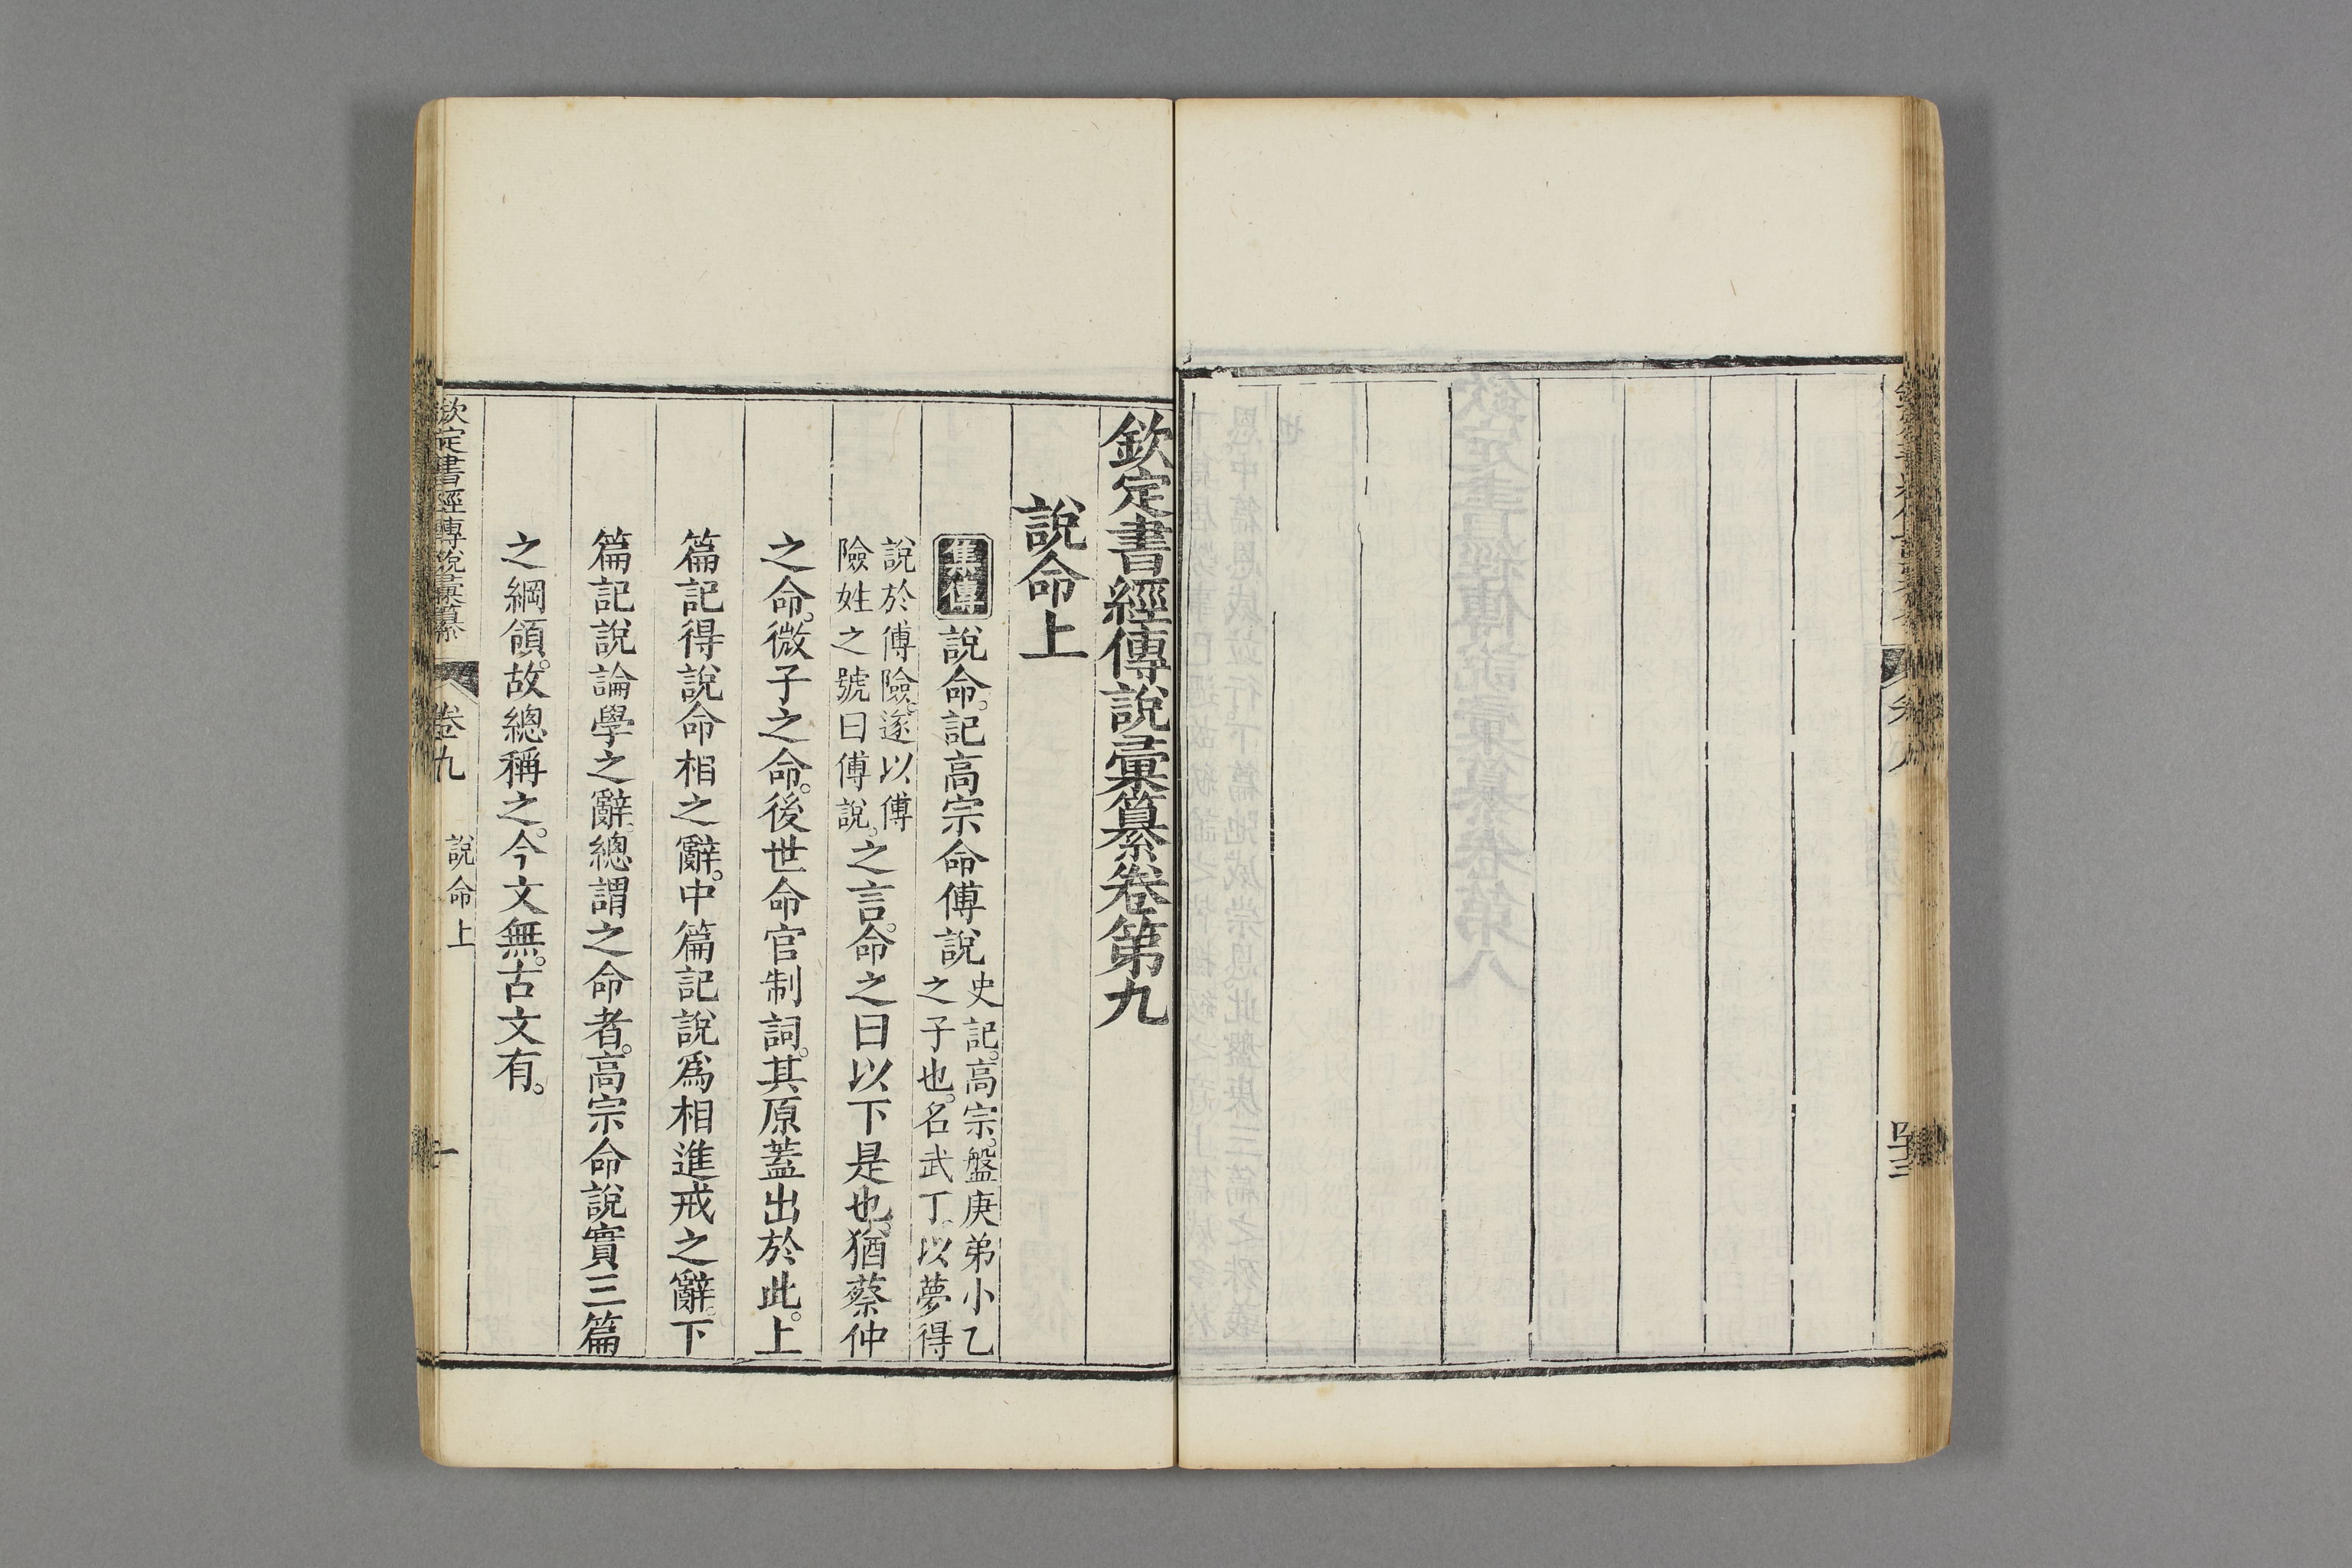 欽定書經傳說彙纂卷第九
說命上
集傳 說命。記高宗命傅說 史記。高宗。盤庚弟小乙
之子也。名武丁。以夢得
說於傅險。遂以傅
險姓之號曰傅說。 之言。命之曰以下是也。猶蔡仲
之命。微子之命。後世命官制詞。其原蓋出於此。上
篇記得說命相之辭。中篇記說爲相進戒之辭。下
篇記說論學之辭。總謂之命者。高宗命說實三篇
之綱領。故總稱之。今文無。古文有。
欽定書經傳說彙纂 卷九 說命上 一